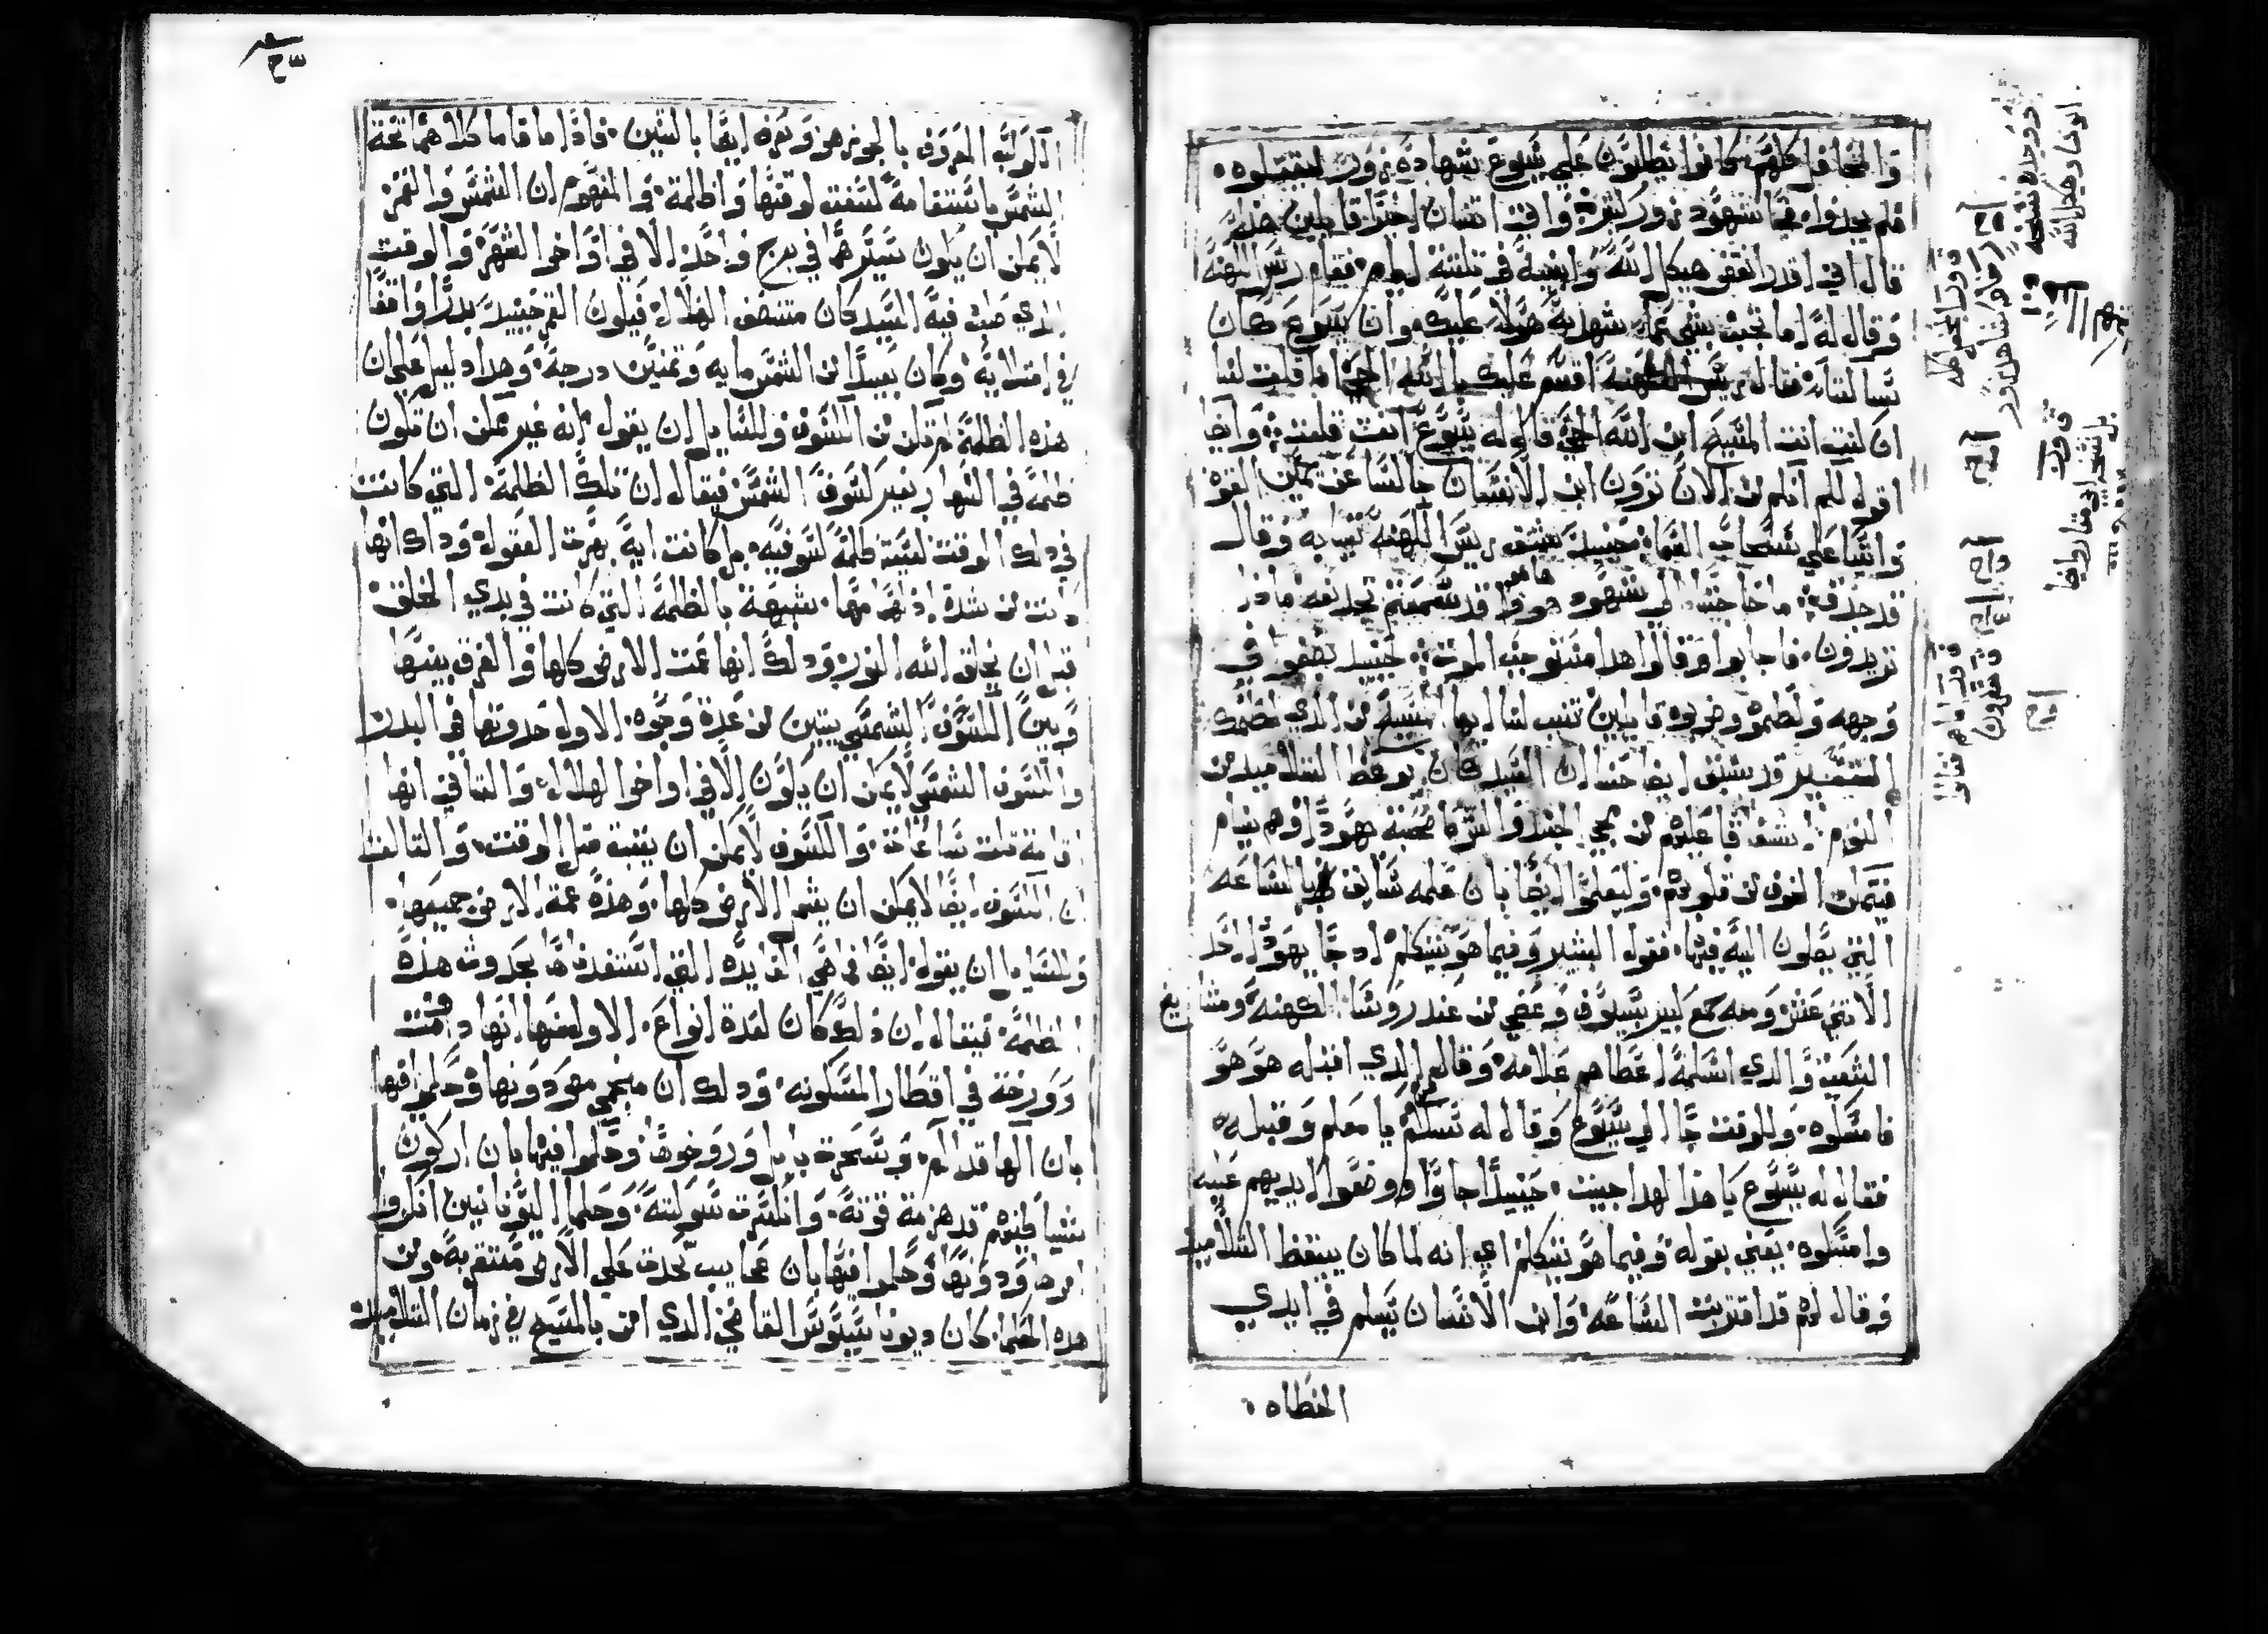 والمحافل كلهم كانوا يطلبون علي يسوع شهادة زور ليقتلوه٠
فلم يجدوا٠ فجا شهود زور كثرة٠ وافا اتنان اخيرا قايلين هذا
قال اني اقدر انقض هيكل الله وابنيه في تلتة ايام٠ فقام ريس الكهنة
وقال له اما تجيب بشي عما يشهد به هولا عليك٠ وان يسوع كان
ساكتا٠ فقال ريس الكهنة اقسم عليك بالله الحي اما قلت لنا
ان كنت انت المسيح ابن الله الحي قال له يسوع انت قلت٠ وايضا
اقول لكم انكم من الان ترون ابن الانسان جالسا عن يمين القوة
واتيا علي سحاب السما٠ حينيد شق ريس الكهنة تيابه وقال
قد جدف٠ ما حاجتنا الي شهود هودا قد سمعتم تجديفه مادا
تريدون٠ فاجابوا وقالوا هدا مستوجب الموت٠ حينيد بصقوا في
وجهه ولطموه وضربوه قايلين تنب لنا ايها المسيح من الدي لطمك
التفسير قد سبق ايضاحنا ان السيد كان يوعظ التلاميد من
النوم٠ اشفاقا عليهم من مجي الجند والشرط صحبة يهودا وهم نيام
فيتمكن الخوف من قلوبهم٠ وليعلموا ايضا بان علمه سابق بالساعة
التي يصلون اليه فيها٠ فقول البشير وفيما هو يتكلم اد جا يهودا احد
الاتني عشر ومعه جمع كبير بسيوف وعصي من عند روسا الكهنة ومشايخ
الشعب والدي اسلمه اعطاهم علامة وقال الدي اقبله هو هو
فامسكوه٠ وللوقت جا الي يسوع وقال له السلام يا معلم وقبله
فقال له يسوع يا هذا لهدا جيت٠ حينيدا جاوا ووضعوا ايديهم عليه
وامسكوه٠ يعني بقوله وفيما هو يتكلم اي انه لما كان ييقظ التلاميد
وقال لهم قد اقتربت الساعة٠ وابن الانسان يسلم في ايدي
الخطاه٠
الكواكب المعروف بالجوزهر ويعرف ايضا بالتنين٠ فادا ما قاما كلاهما تحت
الشمس باستقامة كسفت لوقتها واظلمة٠ والمفهوم ان الشمس والقمر
لا يمكن ان يكون سيرهما في برج واحد الا في اواخر الشهر٠ والوقت
الدي صلب فيه السيد كان منتصف الهلال٠ فيكون القمر حينيد بدرا واقفا
في امتلايه وكان بعيدا من الشمس مايه وتمنين درجة٠ وهدا دليل علي ان
هذه الظلمة لم تكن من الكسوف٠ وللسايل ان يقول انه غير ممكن ان تكون
ظلمة في النهار بغير كسوف الشمس فيقال ان تلك الظلمة٠ التي كانت
في دلك الوقت ليست ظلمة كسوفية٠ بل كانت اية بهرت العقول٠ وداك انها
كانت من شدة ادلهمامها٠ شبيهة بالظلمة التي كانت في بدي الخلق٠
قبل ان يخلق الله النور٠ ودلك انها عمت الارض كلها٠ والفرق بينها
وبين الكسوف الشمسي يتبين من عدة وجوه٠ الاول حدوتها في البدر
والكسوف الشمسي لا يمكن ان يكون الا في اواخر الهلال٠ والتاني انها
اقامت تلت ساعات٠ والكسوف لا يمكن ان يتبت متل الوقت٠ والتالت
ان الكسوف ايضا لا يمكن ان يشمل الارض كلها٠ وهذه عمة الارض جميعها٠
وللسايل ان يقول ايضا فما هي الفايده التي استفدناها بحدوت هذه
الظلمة فيقال ان ذلك كان لعدة انواع٠ الاول منها انها دامت
ورخة في اقطار المسكونه٠ ودلك ان منجمي مصر دونها وحكموا فيها
بان الها قد الم٠ وسحرة بابل ورخوها وحكموا فيها بان اركون
شياطينهم قد هزمت قوته٠ وانكسرت شوكته٠ وحكما اليونانيين انكروا
امرها ودونها وحكموا فيها بان عجايب تحدت علي الارض مستغربة٠ ومن
هده الحكما٠ كان ديوناسيوس القاضي الدي امن بالمسيح في زمان التلاميد